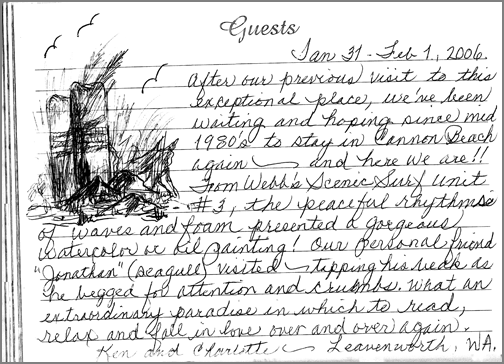 Guests
Jan 31 - Feb 1, 2006.
After our previous visit to this
exceptional place, we've been
waiting and hoping since mid
1980's to stay in Cannon Beach
again — and here we are!!
From Webb's Scenic Surf Unit
#3, the peaceful rhythmse
of waves and foam presented a gorgeous
watercolor or oil painting! Our personal friend
"Jonathan" (seagull) visited — tapping his beak as
he begged for attention and crumbs. What an
extraordinary paradise in which to read,
relax and fall in love over and over again.
Ken and Charlotte — Leavenworth, WA.